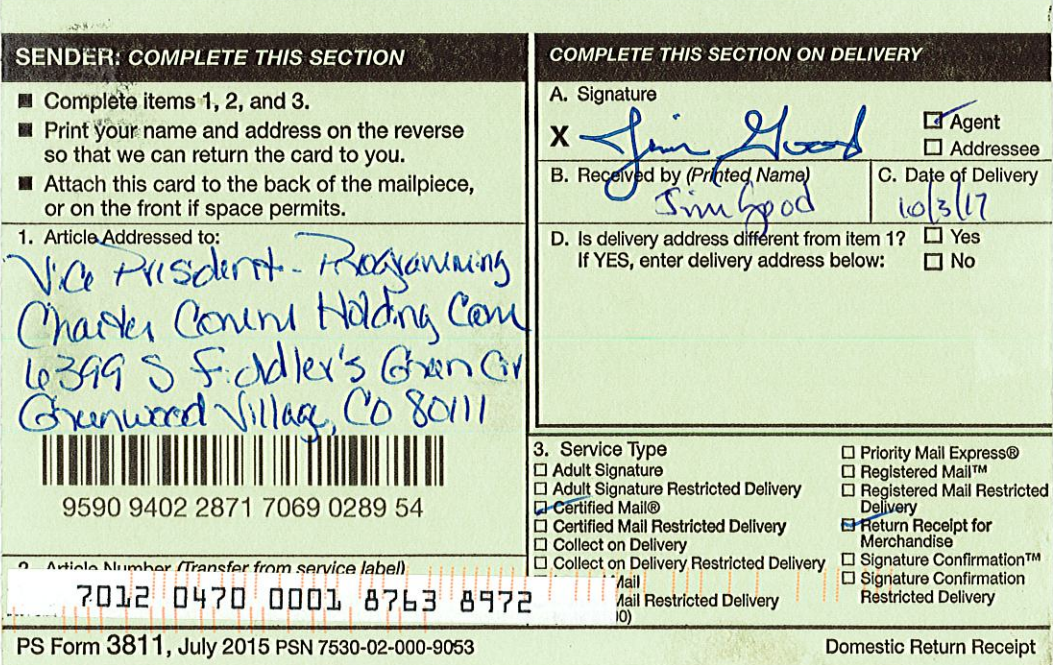 SENDER: COMPLETE THIS SECTION
■ Complete items 1, 2, and 3.
■ Print your name and address on the reverse
so that we can return the card to you.
■ Attach this card to the back of the mailpiece,
or on the front if space permits.
1. Article Addressed to:
Vice President - Programming
Charter Comm Holding Com
6399 S Fiddler's Green Cir
Greenwood Village, CO 80111
9590 9402 2871 7069 0289 54
2. Article Number (Transfer from service label)
7012 0470 0001 8763 8972
COMPLETE THIS SECTION ON DELIVERY
A. Signature
X Jim Good
☑ Agent
☐ Addressee
B. Received by (Printed Name)
Jim Good
C. Date of Delivery
10/3/17
D. Is delivery address different from item 1? ☐ Yes
If YES, enter delivery address below: ☐ No
3. Service Type
☐ Adult Signature
☐ Adult Signature Restricted Delivery
☑ Certified Mail®
☐ Certified Mail Restricted Delivery
☐ Collect on Delivery
☐ Collect on Delivery Restricted Delivery
Mail
Mail Restricted Delivery
00)
☐ Priority Mail Express®
☐ Registered Mail™
☐ Registered Mail Restricted
Delivery
☑ Return Receipt for
Merchandise
☐ Signature Confirmation™
☐ Signature Confirmation
Restricted Delivery
PS Form 3811, July 2015 PSN 7530-02-000-9053
Domestic Return Receipt